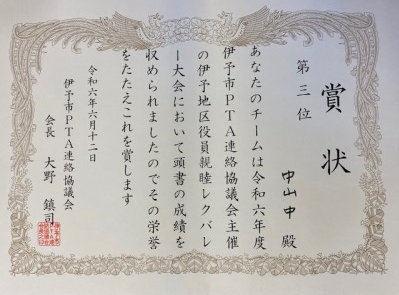 賞状
第三位
中山中 殿
あなたのチームは令和六年度
伊予市PTA連絡協議会主催
の伊予地区役員親睦レクバレ
ー大会において頭書の成績を
収められましたのでその栄誉
をたたえこれを賞します
令和六年六月十二日
伊予市PTA連絡協議会
会長 大野 鎮司